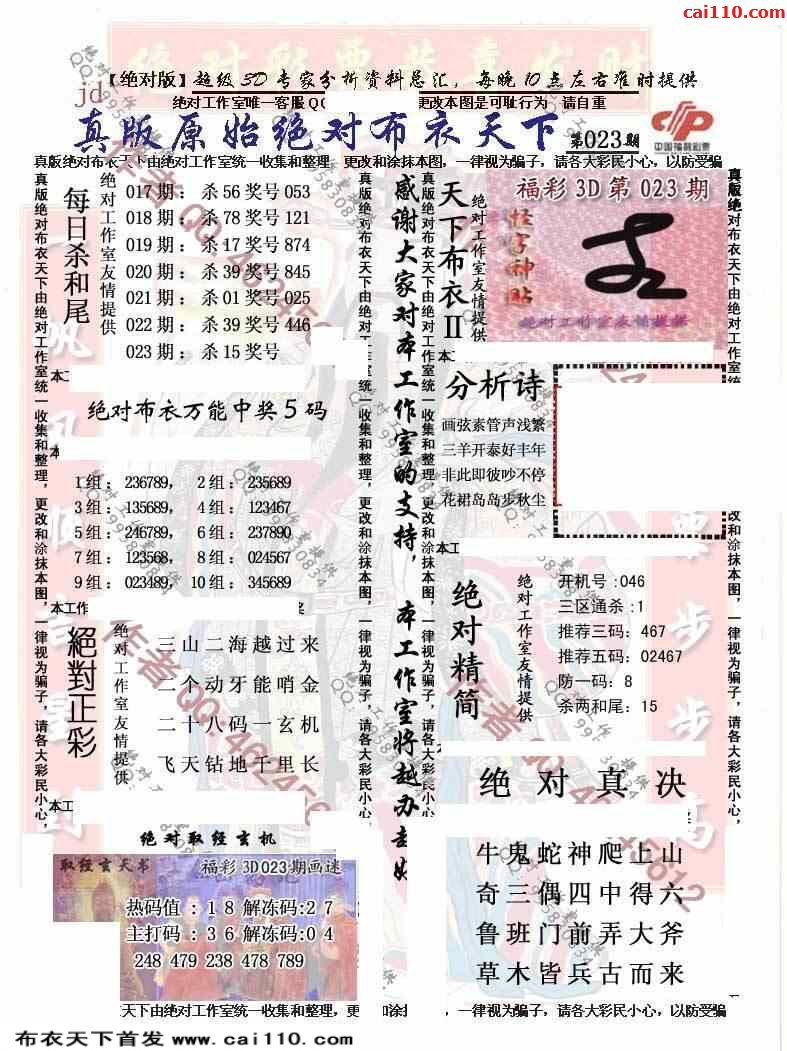 cai110.com
【绝对版】超级3D专家分析资料总汇，每晚10点左右准时提供
jd
绝对工作室唯一客服QQ
更改本图是可耻行为 请自重
真版原始绝对布衣天下 第023期
中国福利彩票
真版绝对布衣天下由绝对工作室统一收集和整理，更改和涂抹本图，一律视为骗子，请各大彩民小心，以防受骗
真版绝对布衣天下由绝对工作室统一收集和整理，更改和涂抹本图，一律视为骗子，请各大彩民小心，
每日杀和尾
绝对工作室友情提供
017期：杀56奖号053
018期：杀78奖号121
019期：杀17奖号874
020期：杀39奖号845
021期：杀01奖号025
022期：杀39奖号446
023期：杀15奖号
本工
绝对布衣万能中奖5码
本
1组：236789， 2组：235689
3组：135689， 4组：123467
5组：246789， 6组：237890
7组：123568， 8组：024567
9组：023489， 10组：345689
本工作
絕對正彩
绝对工作室友情提供
三山二海越过来
二个动牙能哨金
二十八码一玄机
飞天钻地千里长
本工
绝对取经玄机
取经玄天书
福彩3D023期画迷
热码值：18解冻码:27
主打码：36解冻码:04
248 479 238 478 789
真版绝对布衣天下由绝对工作室统一收集和整理，更改和涂抹本图，一律视为骗子，请各大彩民小心，
感谢大家对本工作室的支持，本工作室将越办越好
真版绝对布衣天下由绝对工作室统一收集和整理，更改和涂抹本图，一律视为骗子，请各大彩民小心，
天下布衣II
绝对工作室友情提供
福彩3D第023期
怪字神贴
绝对工作室友情提供
本工
分析诗
画弦素管声浅繁
三羊开泰好丰年
非此即彼吵不停
花裙岛岛步秋尘
本工
绝对精简
绝对工作室友情提供
开机号:046
三区通杀:1
推荐三码：467
推荐五码：02467
防一码：8
杀两和尾：15
绝对真决
牛鬼蛇神爬上山
奇三偶四中得六
鲁班门前弄大斧
草木皆兵古而来
真版绝对布衣天下由绝对工作室统一
收集和整理，更改和涂抹本图，一律视为骗子，请各大彩民小心，
天下由绝对工作室统一收集和整理，更
和涂
，一律视为骗子，请各大彩民小心，以防受骗
布衣天下首发 www.cai110.com